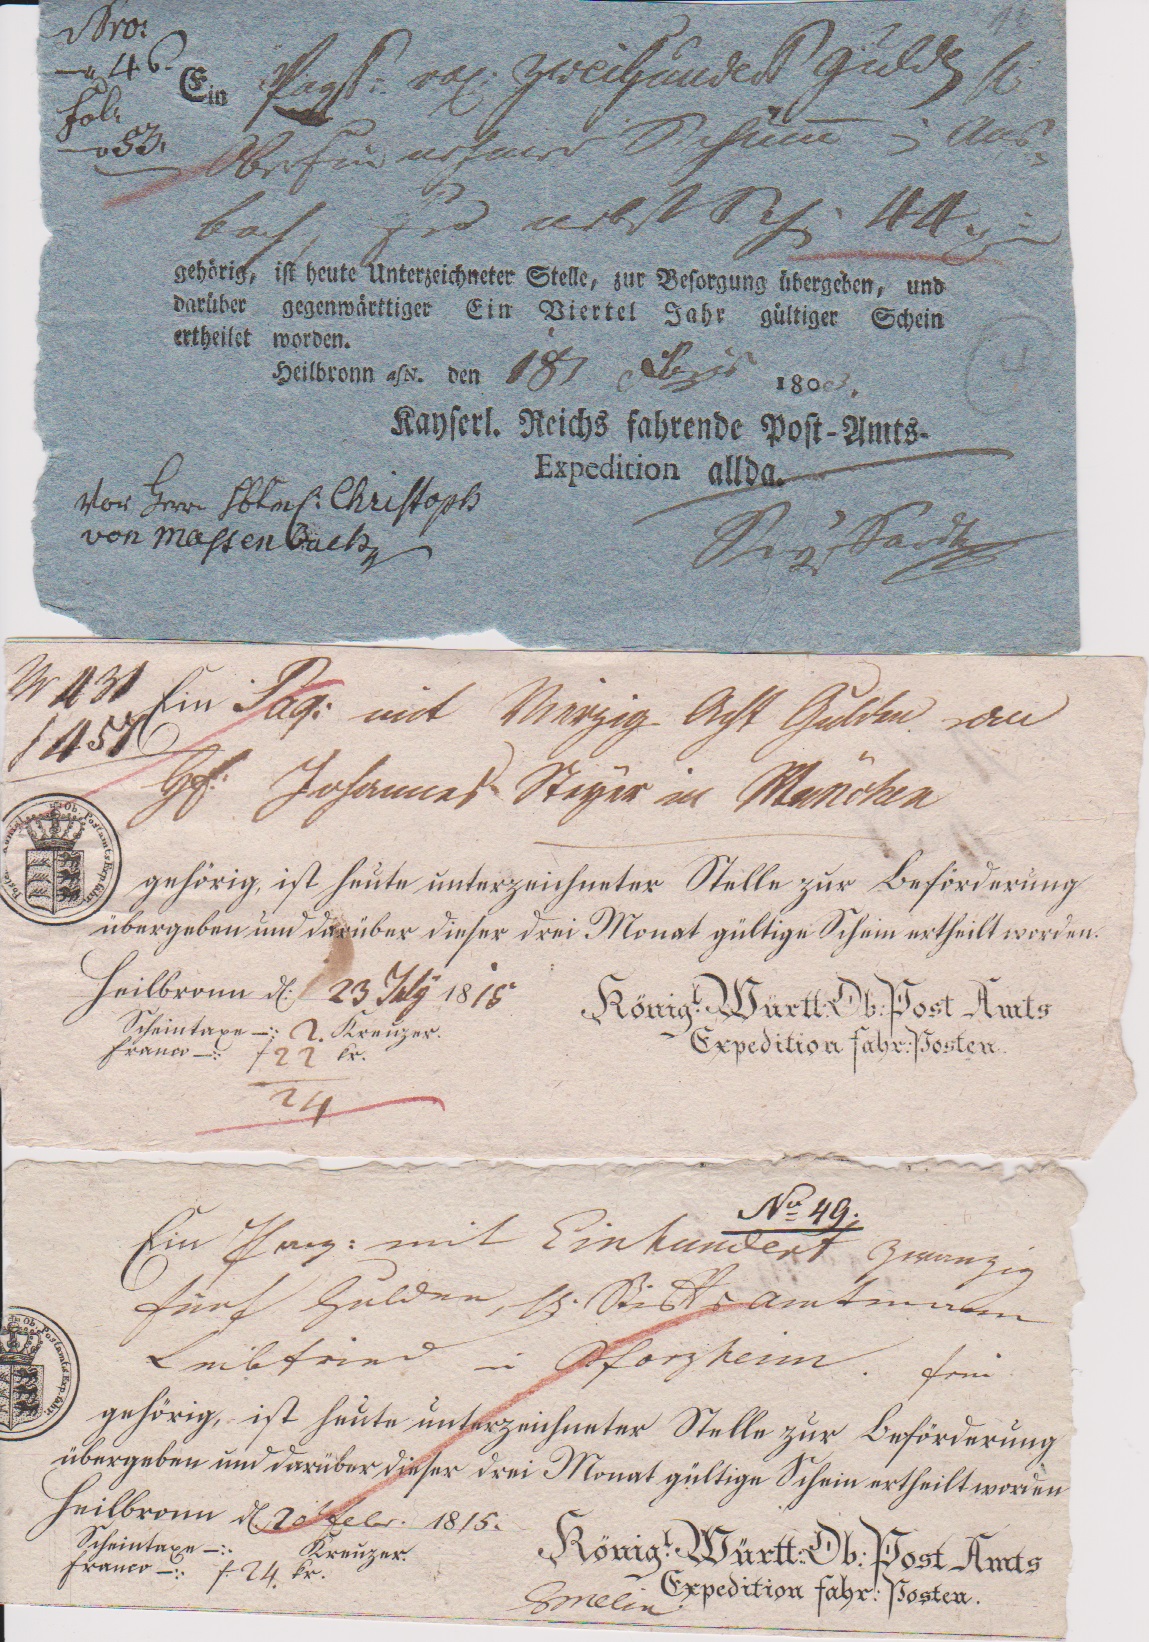 Nro:
46.
Fol:
53.
Ein Paqt: zweihundert Guld
44
gehörig, ist heute Unterzeichneter Stelle, zur Besorgung übergeben, und
darüber gegenwärttiger Ein Viertel Jahr gültiger Schein
ertheilet worden.
Heilbronn a/N. den 18 180
Kayserl. Reichs fahrende Post-Amts-
Expedition allda.
Von Herrn Christoph
von Massenbach
N 431
f 457
Ein Paq: mit Vierzig Acht Gulden an
Johannes Steyer in München
gehörig, ist heute unterzeichneter Stelle zur Beförderung
übergeben und darüber dieser drei Monat gültige Schein ertheilt worden.
Heilbronn d: 23 July 1815
Scheintaxe –: 2. Kreuzer.
Franco –: f 22 kr.
24
Königl. Württ: Ob: Post Amts
Expedition fahr: Posten.
No 49.
Ein Paq: mit Einhundert zwanzig
fünf Gulden, Stiftsamtmann
Leibfried in Pforzheim. frei
gehörig, ist heute unterzeichneter Stelle zur Beförderung
übergeben und darüber dieser drei Monat gültige Schein ertheilt worden
Heilbronn d. 20 Febr. 1815.
Scheintaxe –: Kreuzer.
Franco –: f. 24. kr.
Königl. Württ: Ob: Post Amts
Expedition fahr: Posten.
Gmelin